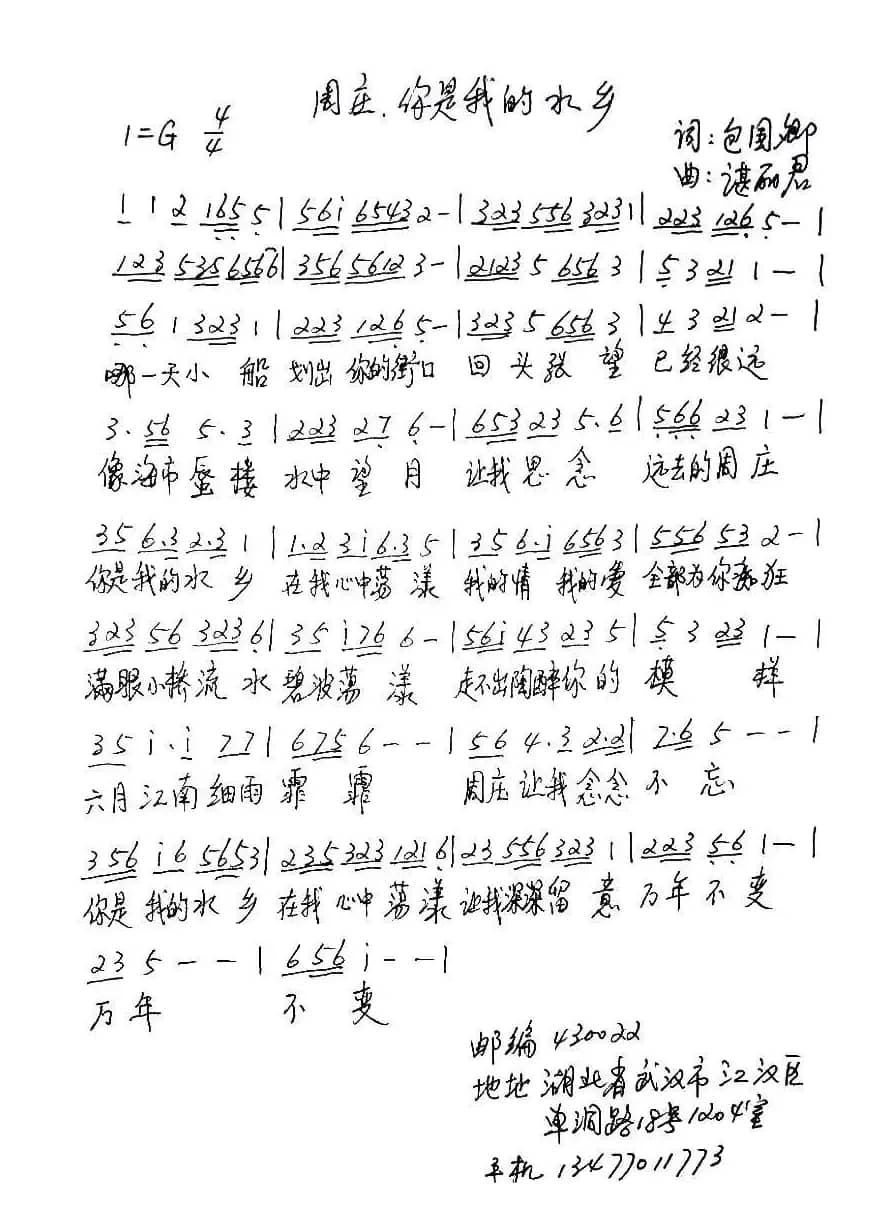 周庄.你是我的水乡
1=G 4/4
词:包国卿
曲:谌丽君
1 1 2 165 5 | 56i 6543 2 - | 323 556 323 1 | 223 126 5 - |
123 535 6566 | 356 5612 3 - | 2123 5 656 3 | 5 3 21 1 - |
56 1 323 1 | 223 126 5 - | 323 5 656 3 | 4 3 21 2 - |
哪一天小 船 划出 你的街口 回 头张 望 已经很远
3. 56 5. 3 | 223 27 6 - | 653 23 5. 6 | 566 23 1 - |
像海市蜃楼 水中 望 月 让我思 念 远去的周庄
35 6.3 2.3 1 | 1.2 3i 6.3 5 | 35 6.i 656 3 | 556 53 2 - |
你是我的水 乡 在我心中荡 漾 我的情 我的爱 全部为你痴狂
323 56 323 6 | 35 i76 6 - | 56i 43 23 5 | 5 3 23 1 - |
满眼小桥流 水 碧波荡 漾 走不出陶醉你 的 模 样
35 i.i 77 | 675 6 - - | 56 4.3 2.2 | 7.6 5 - - |
六月江南细雨 霏 霏 周庄让我念念 不 忘
356 i6 5653 | 235 323 121 6 | 23 556 323 1 | 223 56 1 - |
你是 我的水 乡 在我 心中 荡漾 让我深深留 意 万年 不 变
23 5 - - | 656 i - - |
万 年 不 变
邮编 430022
地址 湖北省武汉市江汉区
单洞路18号1204室
手机 13477011773